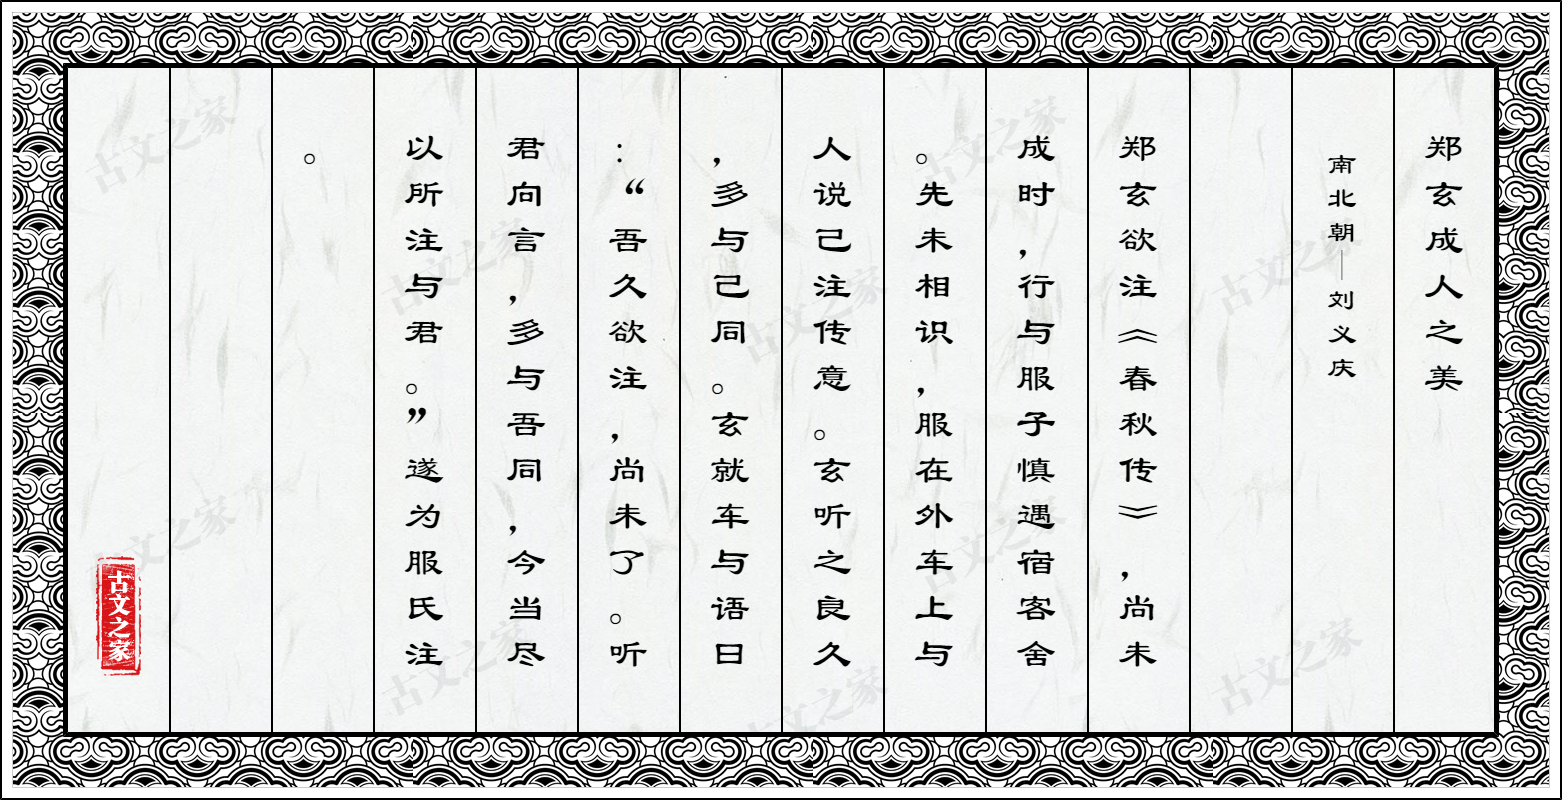 郑玄成人之美
南北朝—刘义庆
郑玄欲注《春秋传》,尚未
成时,行与服子慎遇宿客舍
。先未相识,服在外车上与
人说己注传意。玄听之良久
,多与己同。玄就车与语曰
:“吾久欲注,尚未了。听
君向言,多与吾同,今当尽
以所注与君。”遂为服氏注
。
古文之家